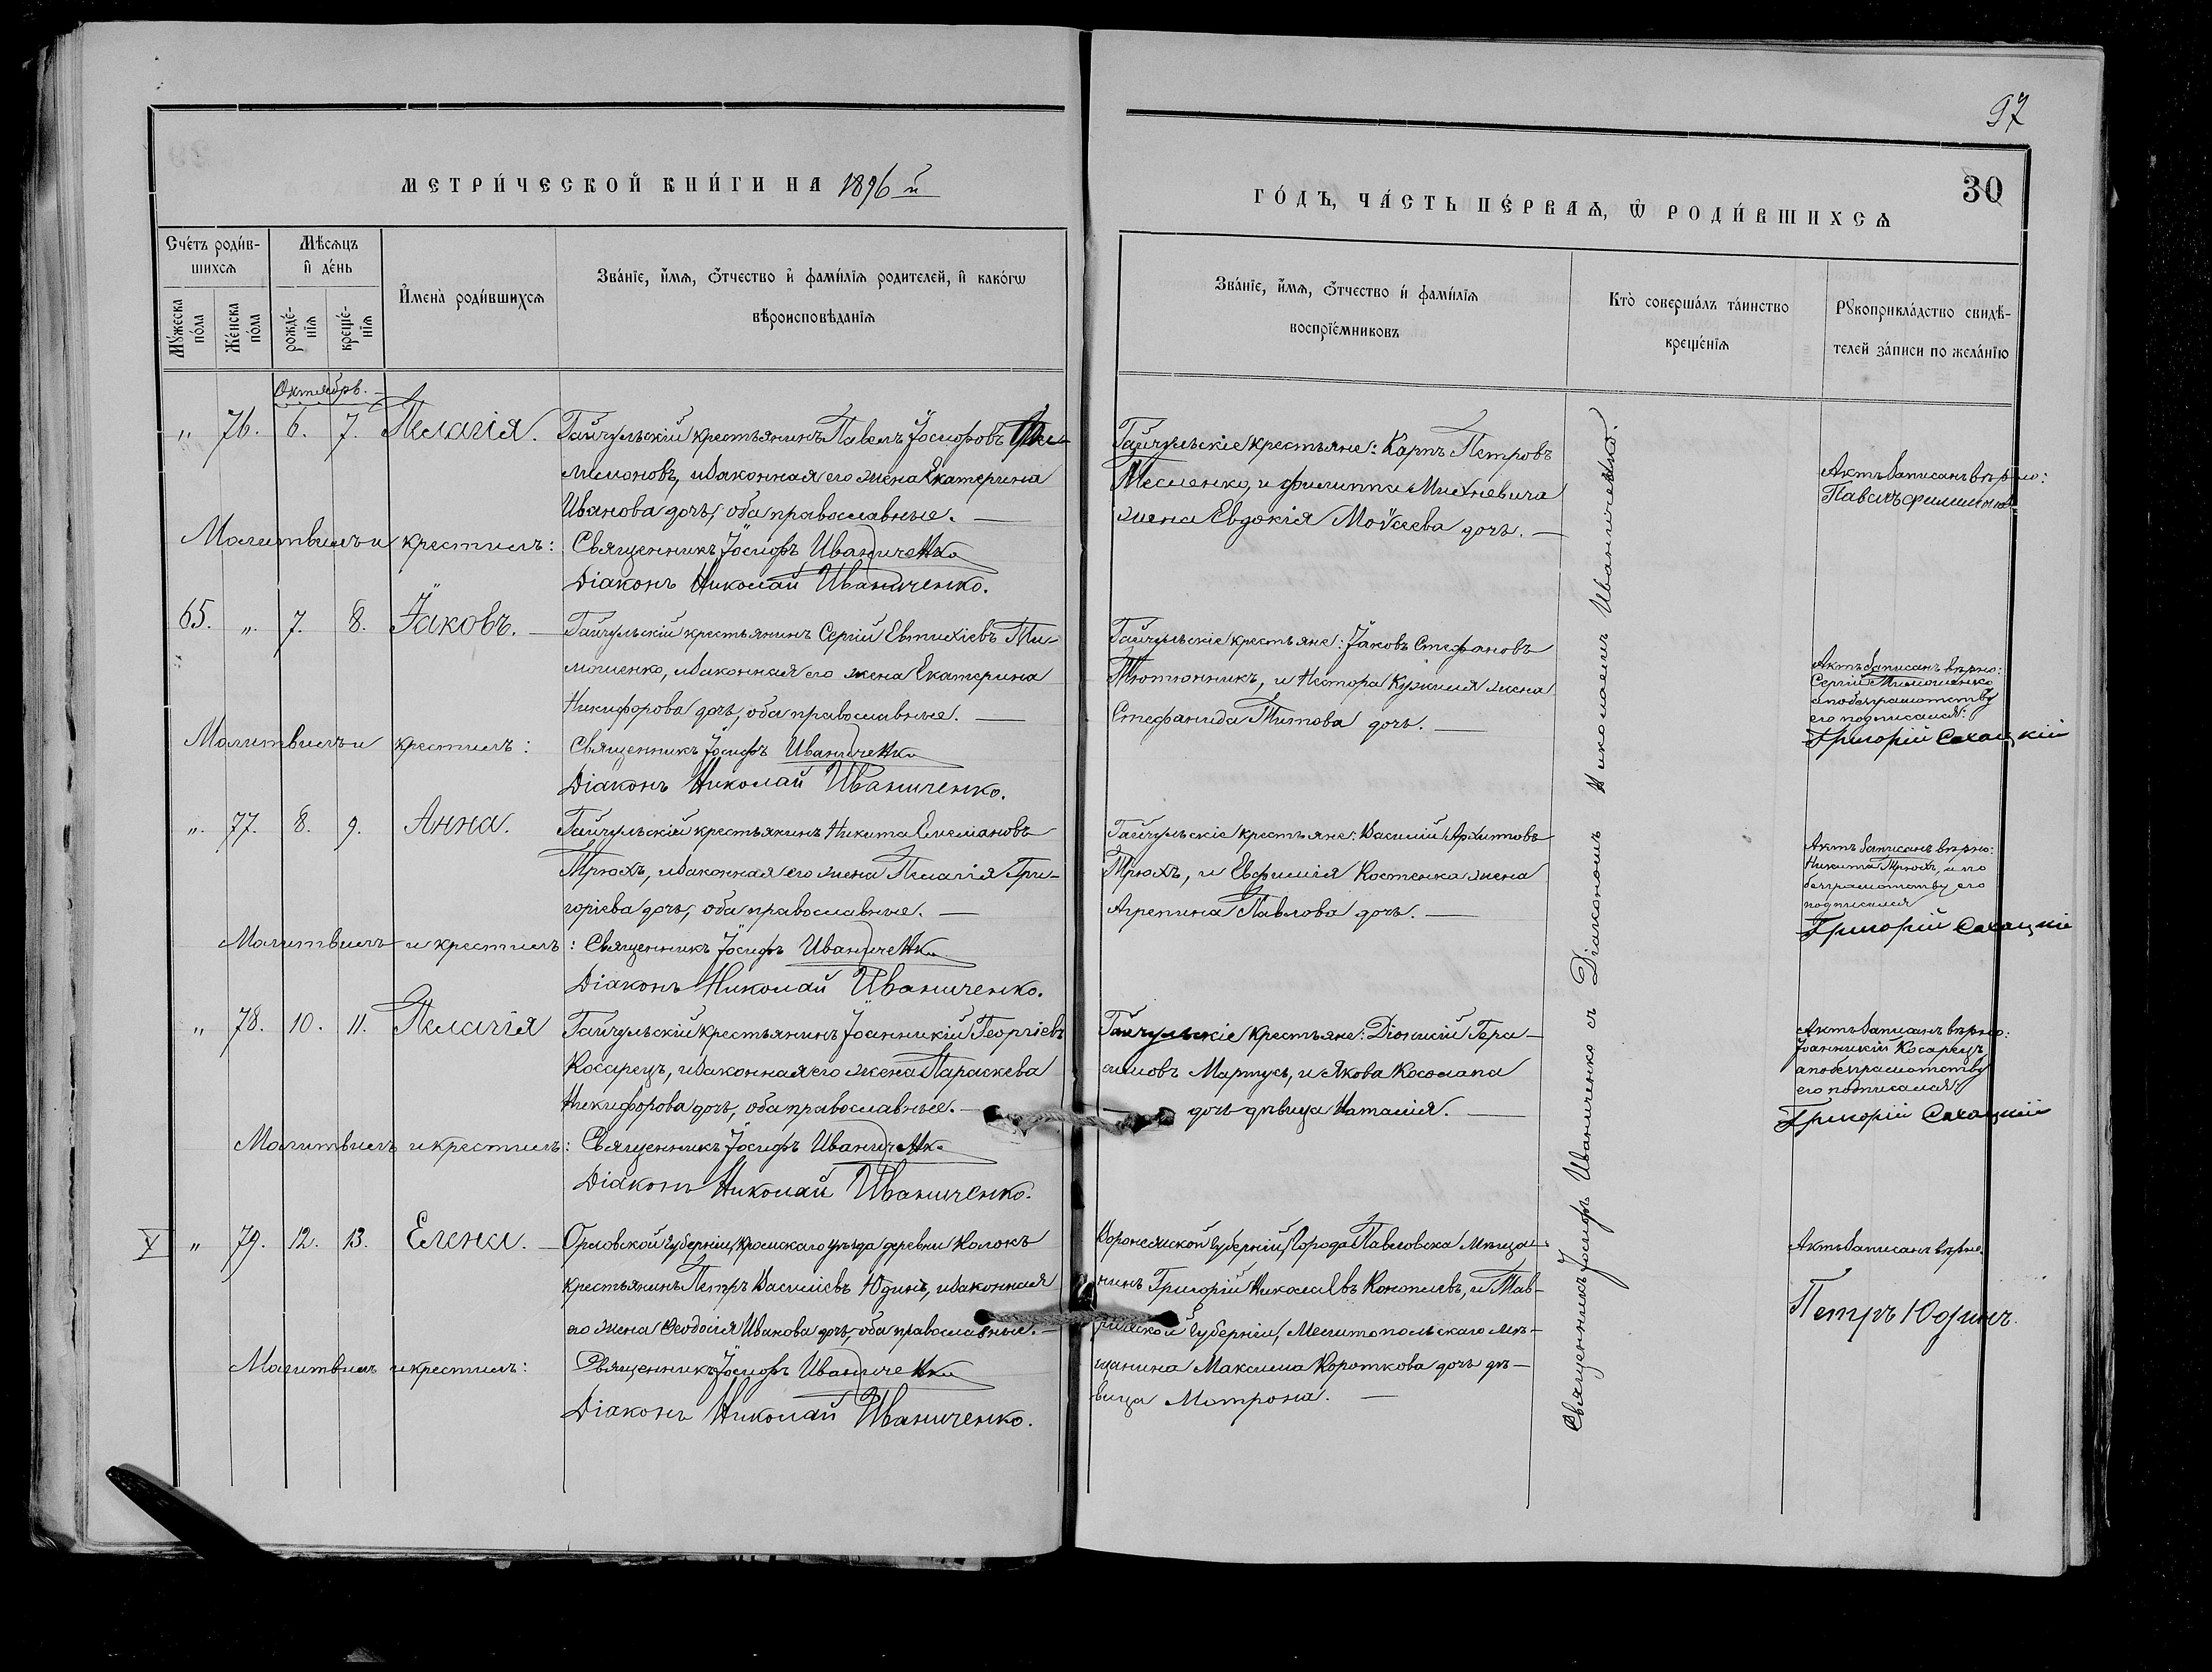 97
МЕТРИ́ЧЕСКОЙ КНИ́ГИ НА 1896 й
ГО́ДЪ, ЧА́СТЬ ПЕ́РВАѦ, Ѡ҆ РОДИ́ВШИХСѦ
30
Сче́тъ роди́в-
шихсѧ
Мѣ́сѧцъ
и҆ де́нь
Мꙋ́жеска по́ла
Же́нска по́ла
рожде́-нїѧ
креще́-нїѧ
И҆мена̀ роди́вшихсѧ
Зва́нїе, и҆́мѧ, ѻ҆́тчество и҆ фами́лїѧ родителей, и҆ како́гѡ
вѣроисповѣ́данїѧ
Зва́нїе, и҆́мѧ, ѻ҆́тчество и҆ фами́лїѧ
воспрїе́мниковъ
Кто̀ соверша́лъ та́инство
креще́нїѧ
Рꙋкоприкла́дство свидѣ́-
телей за́писи по жела́нїю
Октябрь.
„ 76. 6. 7. Пелагія. Гайчульскій крестьянинъ Павелъ Іосифовъ Фи-
лимоновъ, и законная его жена Екатерина
Иванова дочь, оба православные.
Молитвилъ и крестилъ: Священникъ Іосифъ Иваниченко
Діаконъ Николай Иваниченко.
Гайчульскіе крестьяне: Карпъ Петровъ
и Филиппа Михневича
жена Евдокія Моѵсеева дочь.
Актъ записанъ вѣрно:
Павелъ Филимоновъ
65. „ 7. 8. Іаковъ. Гайчульскій крестьянинъ Сергій Евтихіевъ Ти-
мошенко, и законная его жена Екатерина
Никифорова дочь, оба православные.
Молитвилъ и крестилъ: Священникъ Іосифъ Иваниченко
Діаконъ Николай Иваниченко.
Гайчульскіе крестьяне: Іаковъ Стефановъ
Тютюнникъ, и Нестора жена
Стефанида Титова дочь.
Актъ записанъ вѣрно:
Сергій Тимошенко
а по безграмотству
его подписался:
Григорій Сахацкій
„ 77. 8. 9. Анна. Гайчульскій крестьянинъ Никита Емеліановъ
Трюхъ, и законная его жена Пелагія Гри-
горіева дочь, оба православные.
Молитвилъ и крестилъ: Священникъ Іосифъ Иваниченко
Діаконъ Николай Иваниченко.
Гайчульскіе крестьяне: Василій Архиповъ
Трюхъ, и Евфимія Костенка жена
Агрепина Павлова дочь.
Актъ записанъ вѣрно:
Никита Трюхъ, а по
безграмотству его
подписался
Григорій Сахацкій
„ 78. 10. 11. Пелагія Гайчульскій крестьянинъ Іоанникій Георгіевъ
Косарецъ, и законная его жена Параскева
Никифорова дочь, оба православные.
Молитвилъ и крестилъ: Священникъ Іосифъ Иваниченко
Діаконъ Николай Иваниченко.
Гайчульскіе крестьяне: Діонисій Гера-
симовъ Мартусь, и Якова Косолапа
дочь дѣвица Наталія.
Актъ записанъ вѣрно:
Іоанникій Косарецъ,
а по безграмотству
его подписался:
Григорій Сахацкій
„ 79. 12. 13. Елена. Орловской губерніи, Кромскаго уѣзда деревни Колокъ
крестьянинъ Петръ Василіевъ Юдинъ, и законная
его жена Ѳеодосія Иванова дочь, оба православные.
Молитвилъ и крестилъ: Священникъ Іосифъ Иваниченко
Діаконъ Николай Иваниченко.
Воронежской губерніи, города Павловска Мѣща-
нинъ Григорій Николаевъ Коноплевъ, и Тав-
рической губерніи, Мелитопольскаго мѣ-
щанина Максима Короткова дочь дѣ-
вица Матрона.
Актъ записанъ вѣрно.
Петръ Юдинъ.
Священникъ Іосифъ Иваниченко съ Діакономъ Николаемъ Иваниченко.